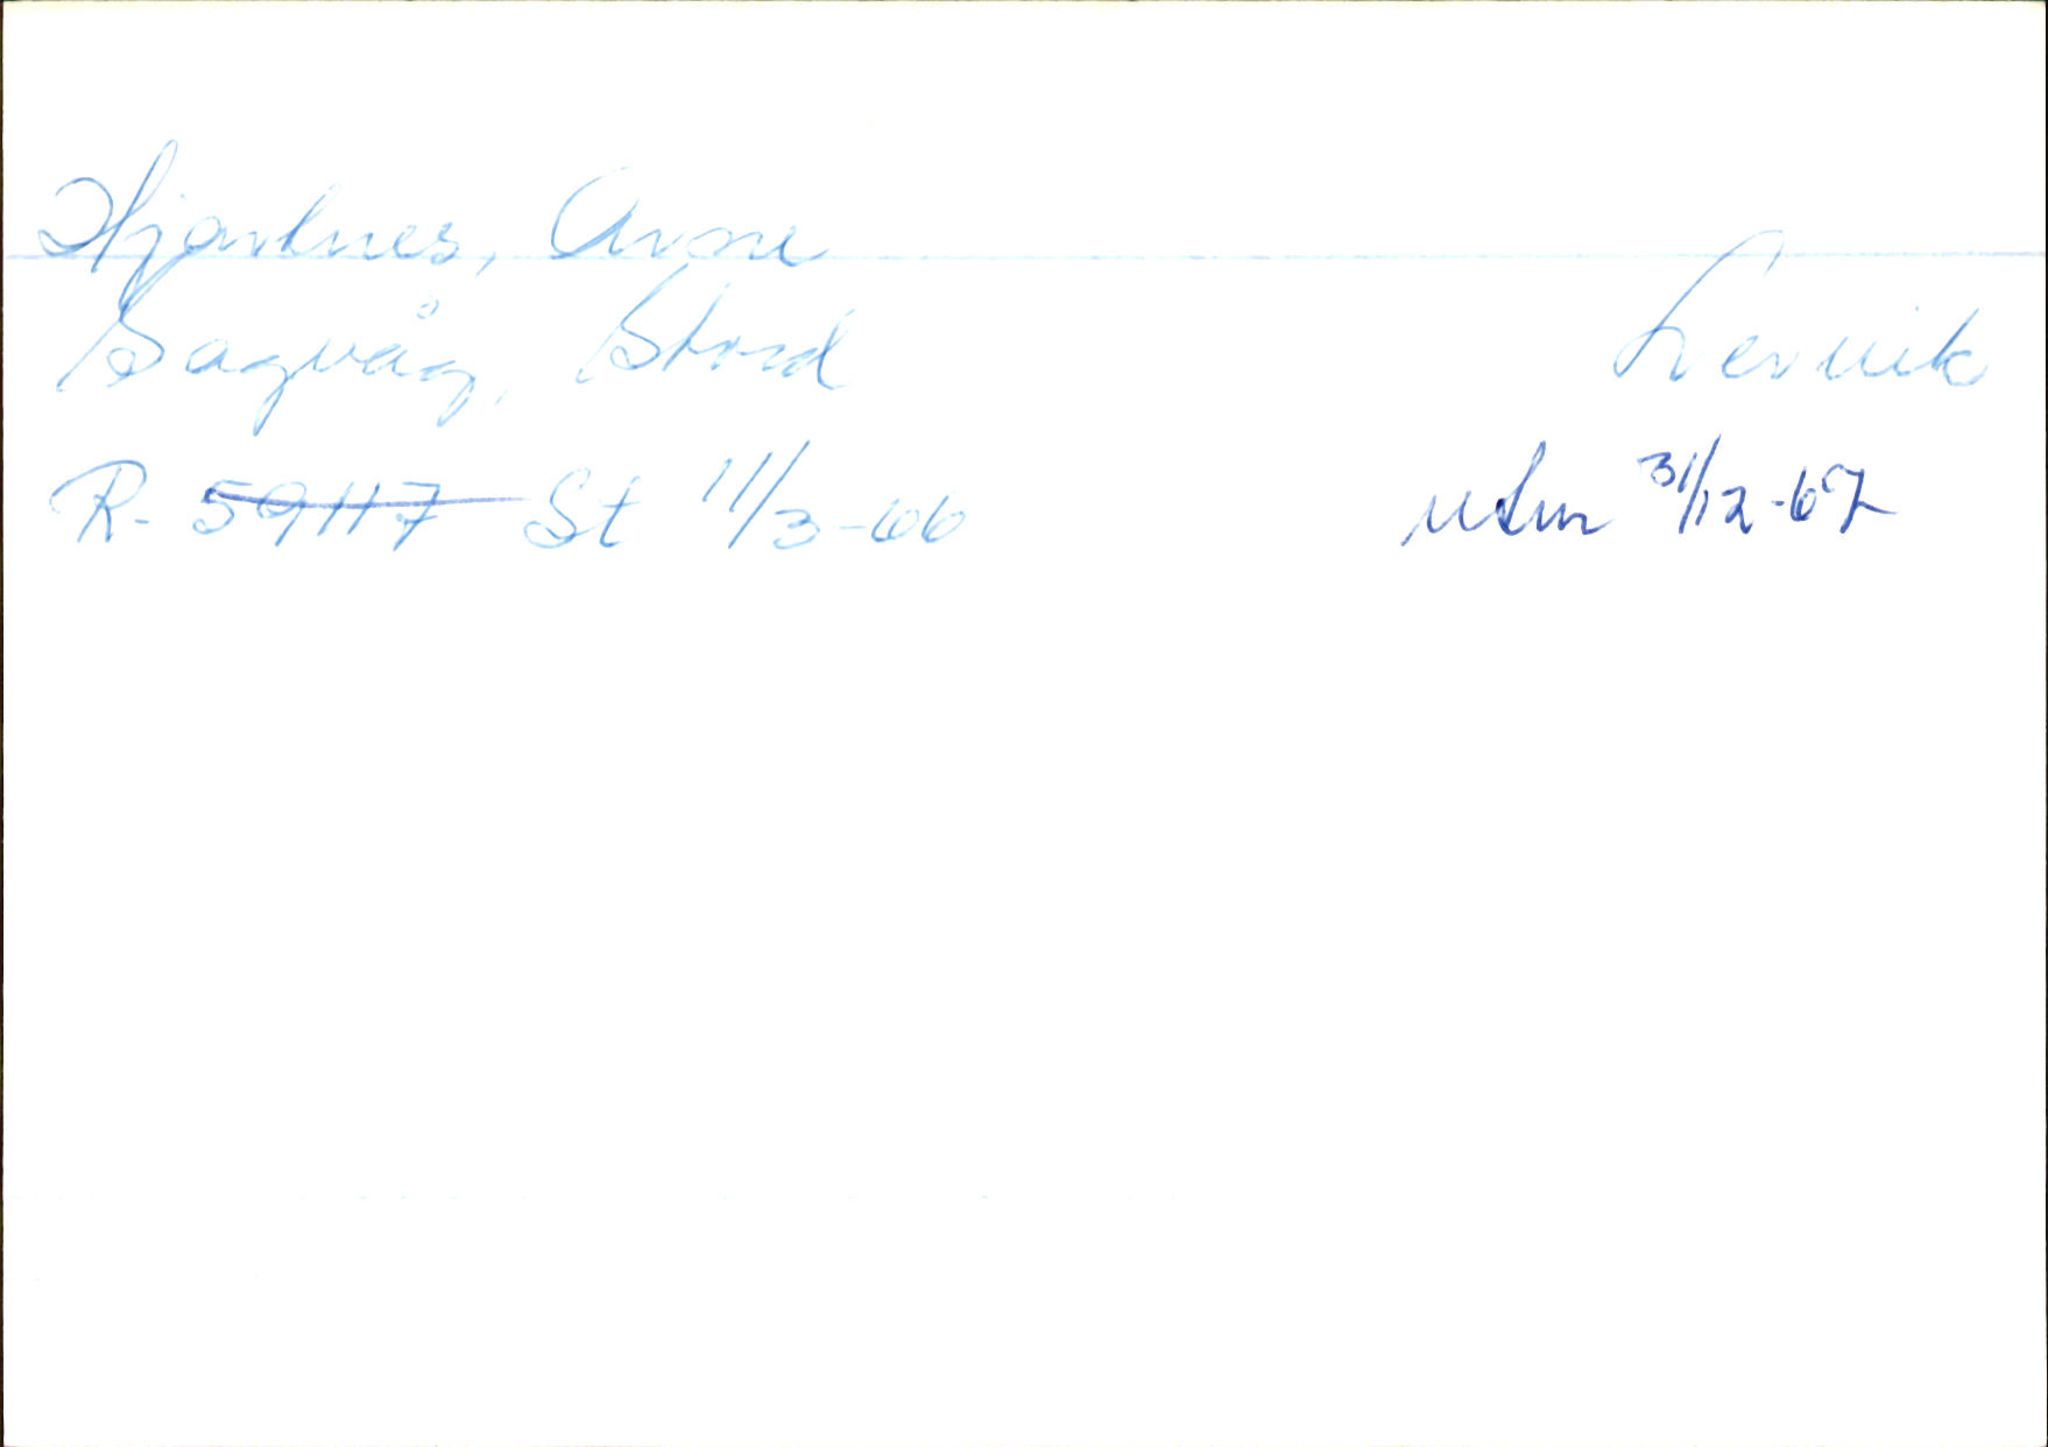 Hjartnes, Arne
Sagvåg, Stord
Lervik
R- 59117 St 11/3-66
utm 31/12-67